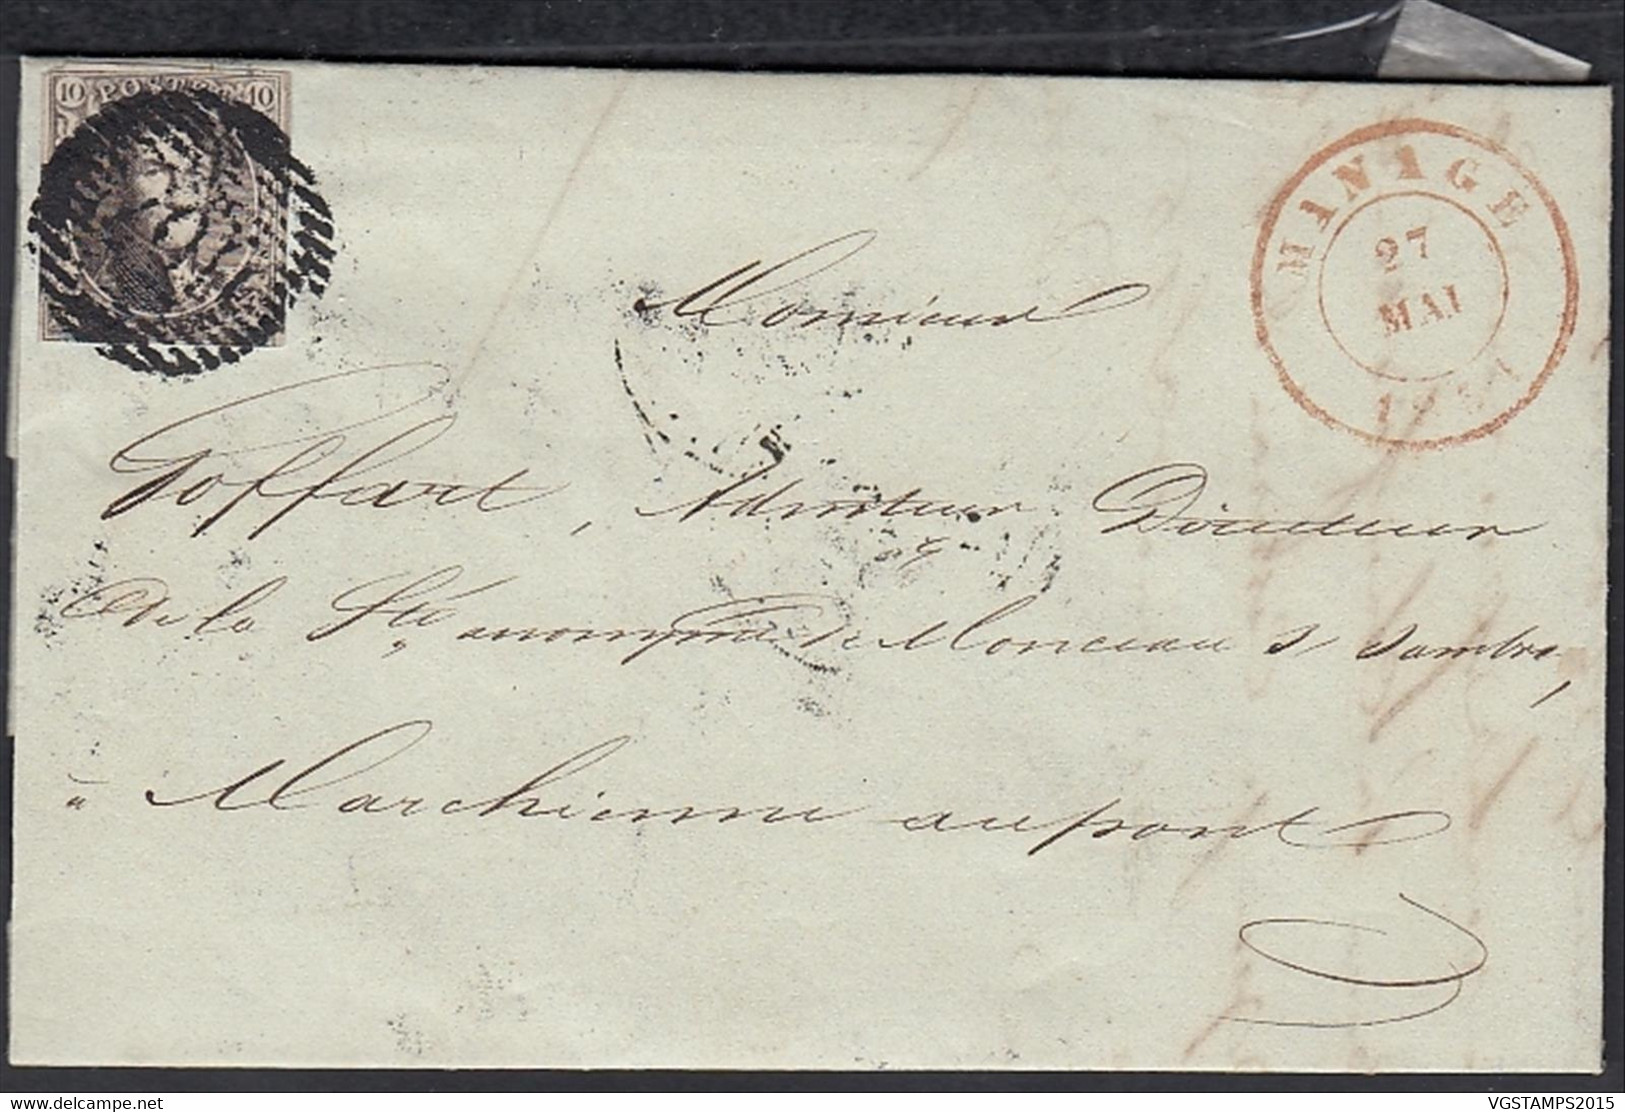 10 POSTES 10
MANAGE
27
MAI
1851
Monsieur
Goffart, Admteur Directeur
De la Sté anonyme de Monceau s/ Sambre,
à Marchienne au pont
VGSTAMPS2015